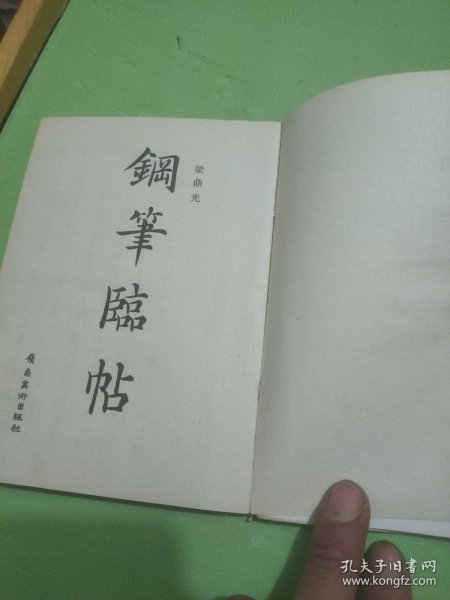 梁鼎光
鋼筆臨帖
嶺南美術出版社
孔夫子旧书网
www.kongfz.com